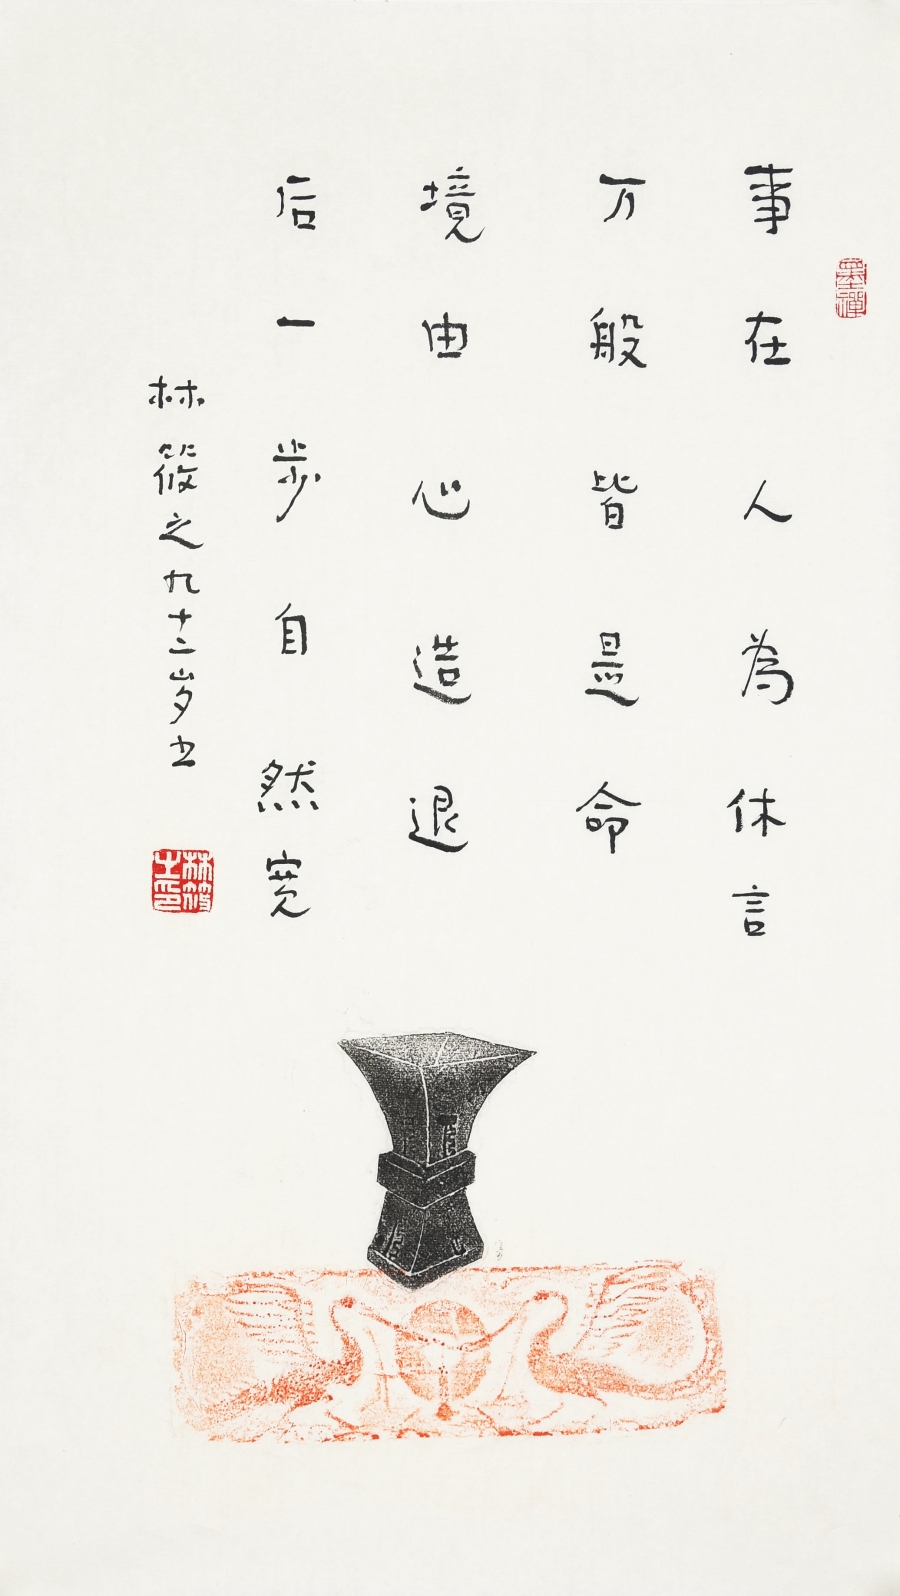 事在人為休言
万般皆是命
境由心造退
后一步自然宽
林筱之九十二岁书
墨禪
林筱之印